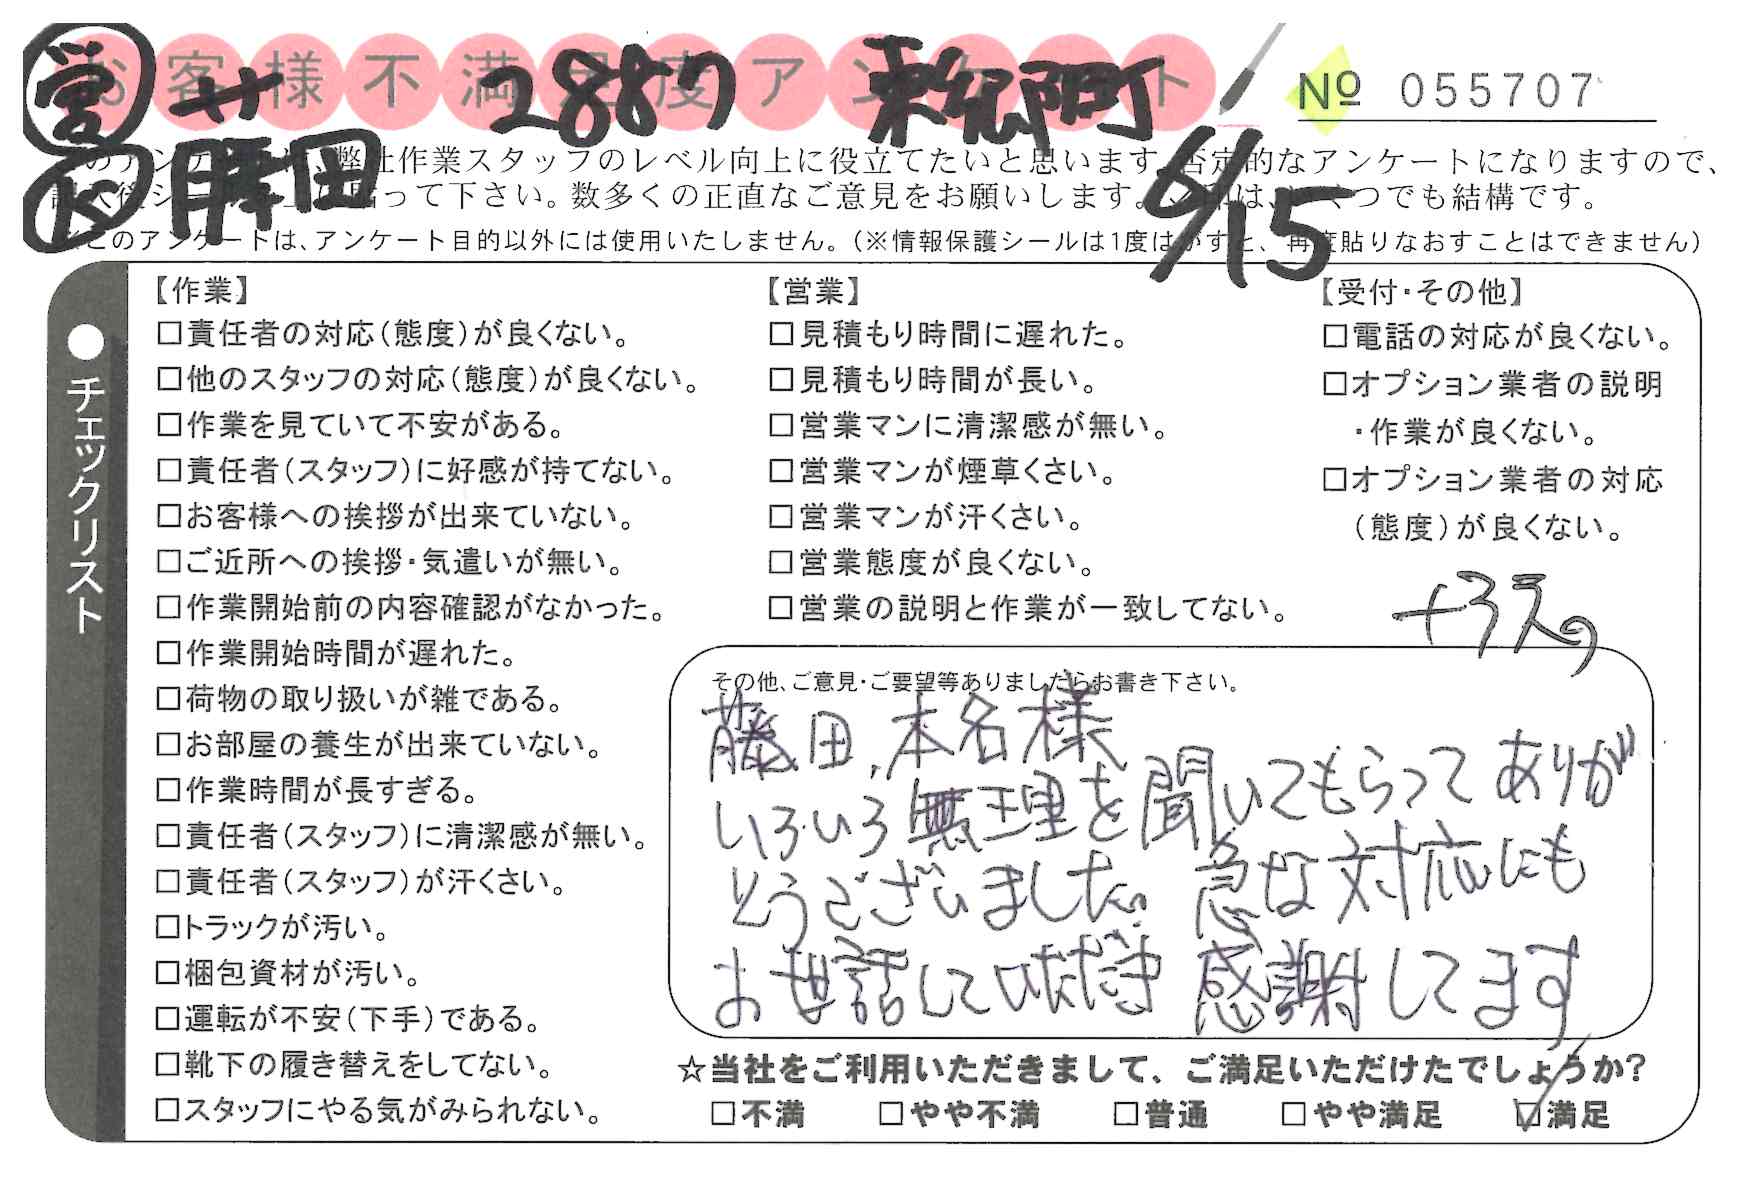 お客様不満足度アンケート
営 2887 6/15
№ 055707
このアンケートは、弊社作業スタッフのレベル向上に役立てたいと思います。否定的なアンケートになりますので、
って下さい。数多くの正直なご意見をお願いします。 つでも結構です。
※このアンケートは、アンケート目的以外には使用いたしません。（※情報保護シールは1度はがすと、再度貼りなおすことはできません）
●チェックリスト
【作業】
□責任者の対応（態度）が良くない。
□他のスタッフの対応（態度）が良くない。
□作業を見ていて不安がある。
□責任者（スタッフ）に好感が持てない。
□お客様への挨拶が出来ていない。
□ご近所への挨拶・気遣いが無い。
□作業開始前の内容確認がなかった。
□作業開始時間が遅れた。
□荷物の取り扱いが雑である。
□お部屋の養生が出来ていない。
□作業時間が長すぎる。
□責任者（スタッフ）に清潔感が無い。
□責任者（スタッフ）が汗くさい。
□トラックが汚い。
□梱包資材が汚い。
□運転が不安（下手）である。
□靴下の履き替えをしてない。
□スタッフにやる気がみられない。
【営業】
□見積もり時間に遅れた。
□見積もり時間が長い。
□営業マンに清潔感が無い。
□営業マンが煙草くさい。
□営業マンが汗くさい。
□営業態度が良くない。
□営業の説明と作業が一致してない。
【受付・その他】
□電話の対応が良くない。
□オプション業者の説明
・作業が良くない。
□オプション業者の対応
（態度）が良くない。
その他、ご意見・ご要望等ありましたらお書き下さい。
藤田、本名様
いろいろ無理を聞いてもらってありが
とうございました。急な対応にも
お世話していただき感謝してます
☆当社をご利用いただきまして、ご満足いただけたでしょうか？
□不満 □やや不満 □普通 □やや満足 ☑満足